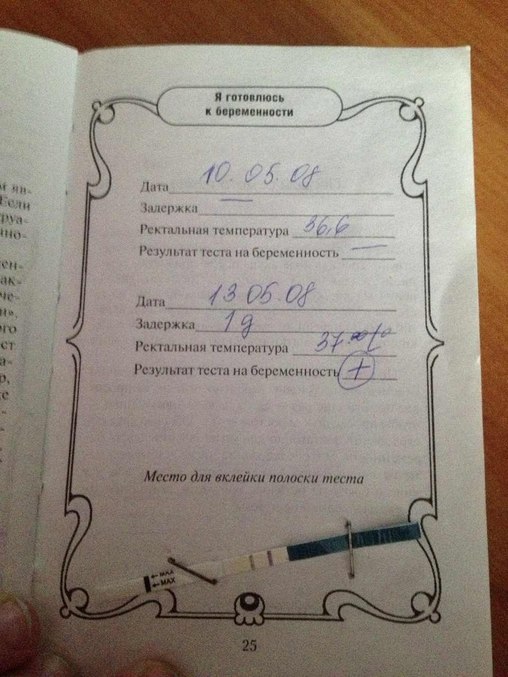 Я готовлюсь
к беременности
Дата 10.05.08
Задержка —
Ректальная температура 36,6
Результат теста на беременность —
Дата 13 05.08
Задержка 1 д
Ректальная температура 37
Результат теста на беременность +
Место для вклейки полоски теста
← MAX
← MAX
25